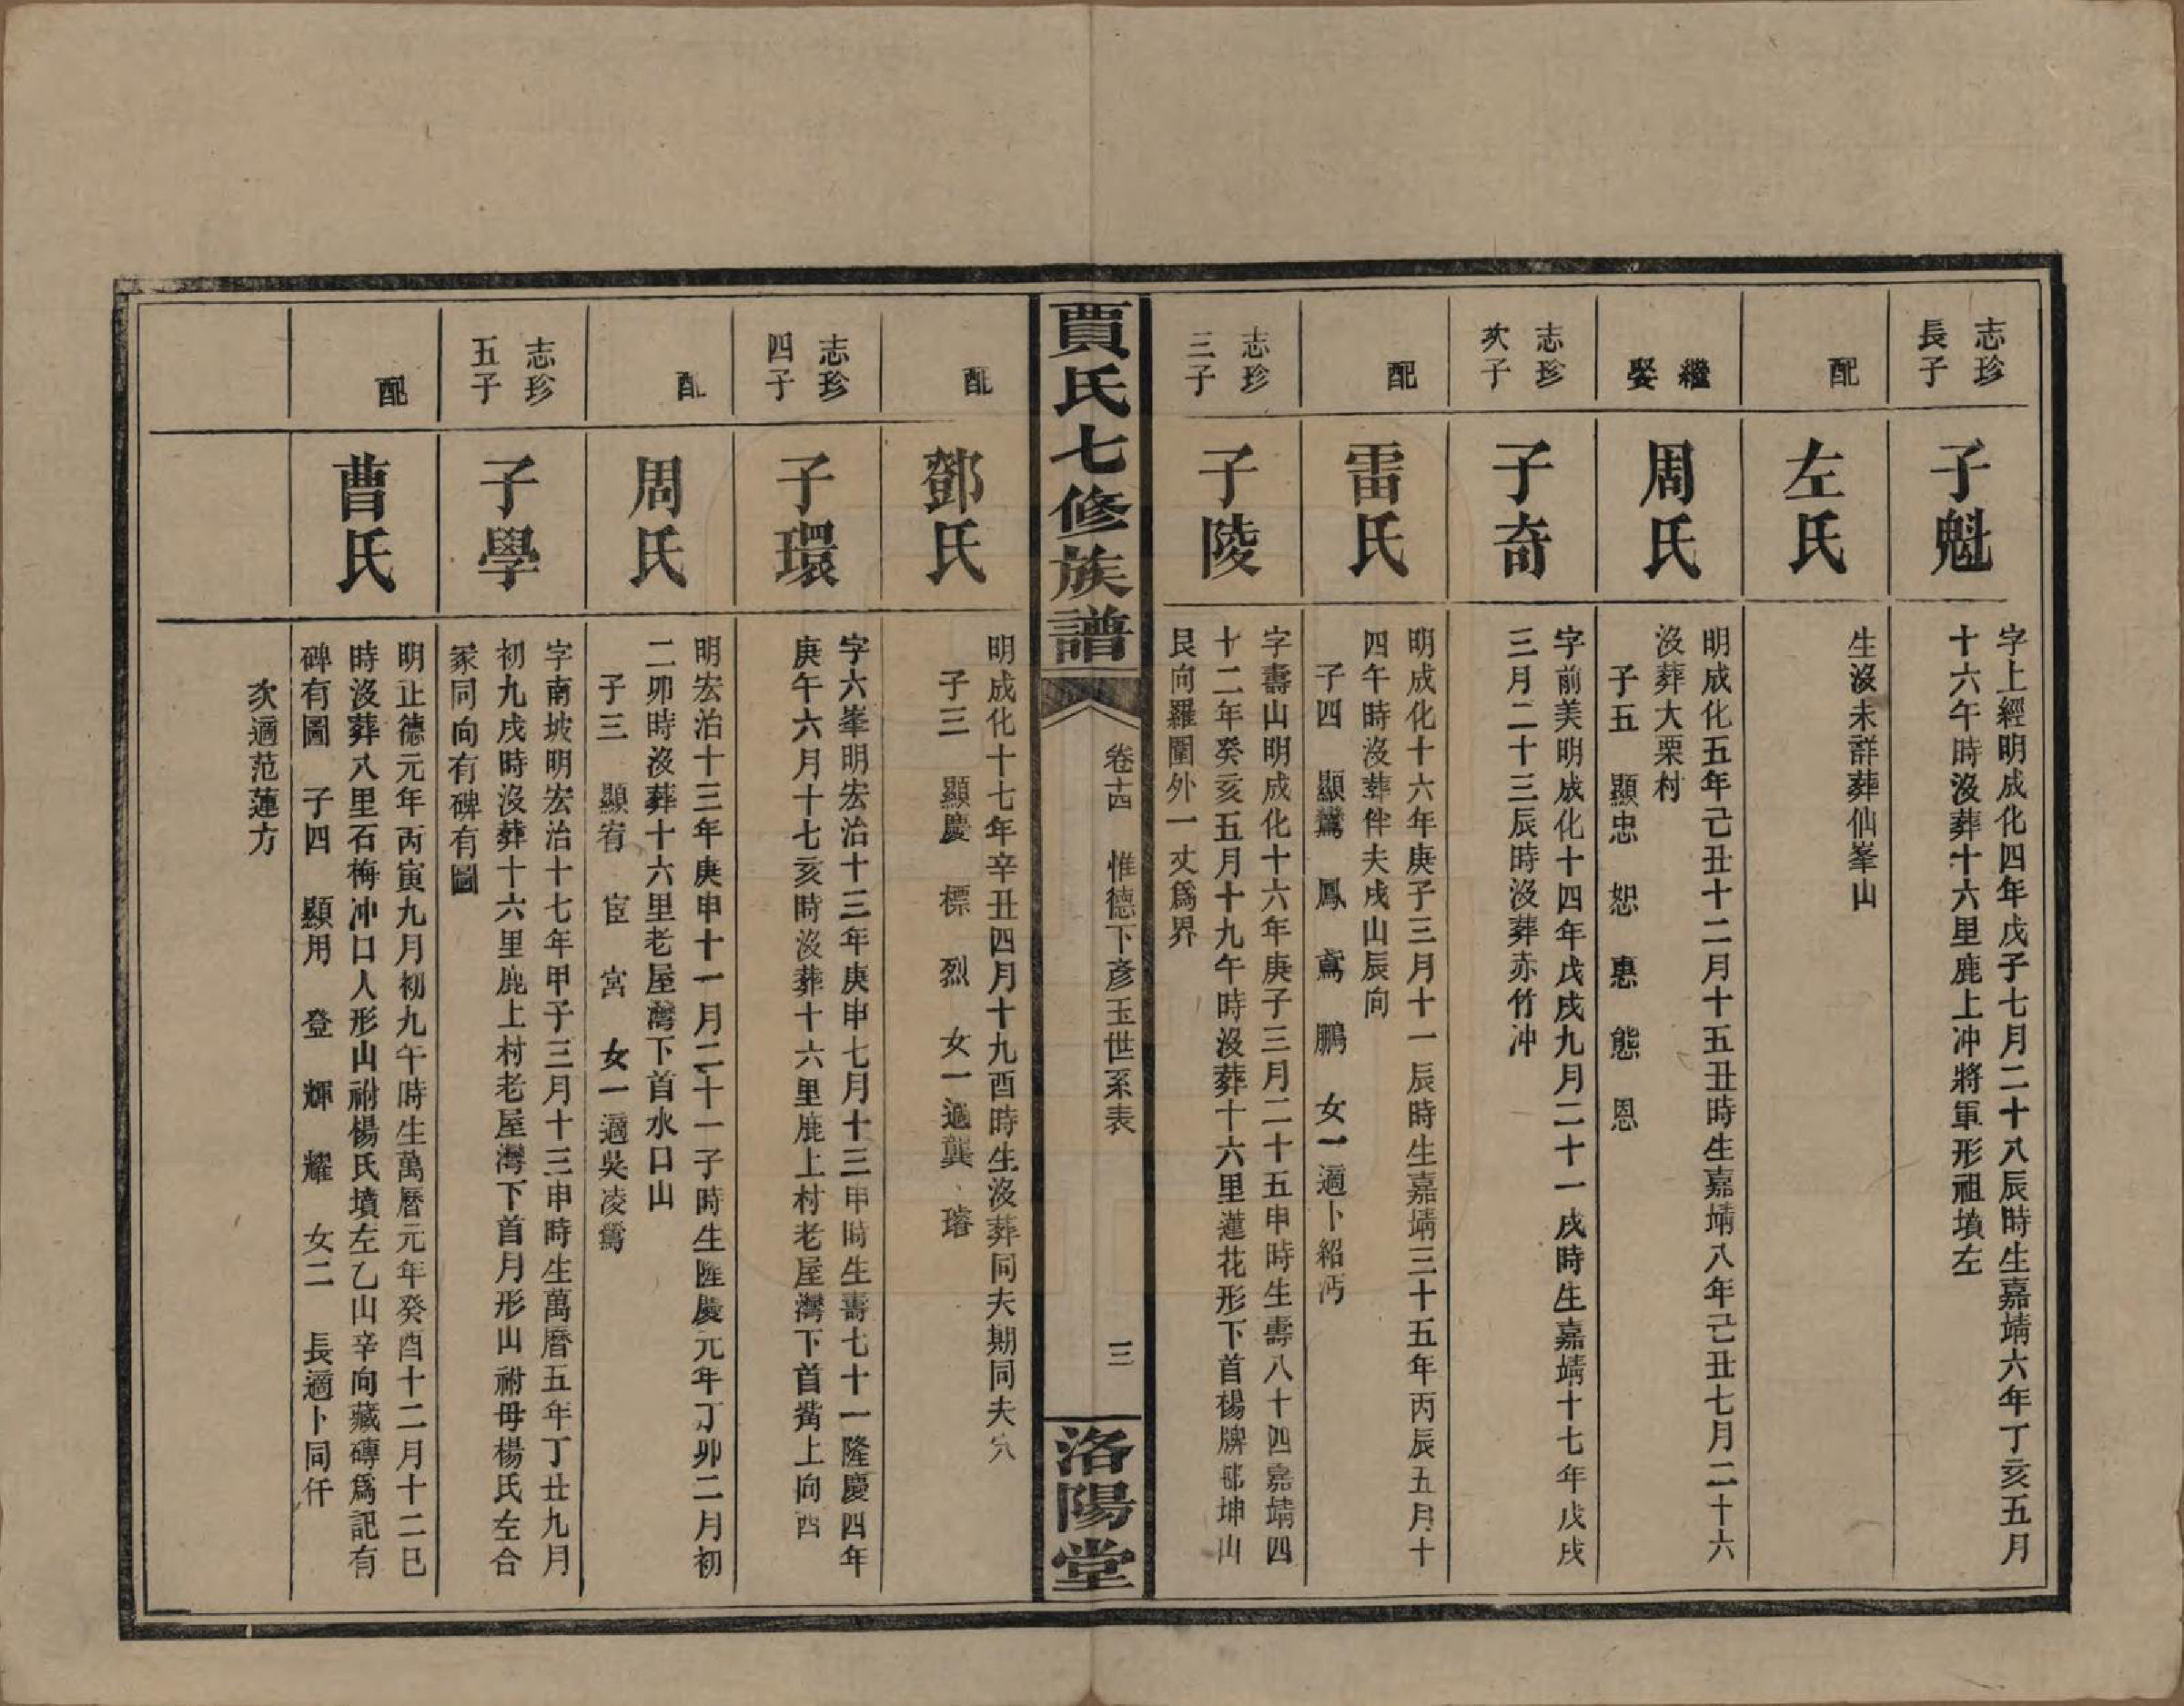 志珍
長子
子魁
字上經明成化四年戊子七月二十八辰時生嘉靖六年丁亥五月
十六午時沒葬十六里鹿上冲將軍形祖墳左
配
左氏
生沒未詳葬仙峯山
繼
娶
周氏
明成化五年己丑十二月十五丑時生嘉靖八年己丑七月二十六
沒葬大栗村
子五 顯忠 恕 惠 態 恩
志珍
次子
子奇
字前美明成化十四年戊戌九月二十一戌時生嘉靖十七年戊戌
三月二十三辰時沒葬赤竹冲
配
雷氏
明成化十六年庚子三月十一辰時生嘉靖三十五年丙辰五月十
四午時沒葬伴夫戌山辰向
子四 顯鸞 鳳 鳶 鵬 女一適卜紹沔
志珍
三子
子陵
字壽山明成化十六年庚子三月二十五申時生壽八十四嘉靖四
十二年癸亥五月十九午時沒葬十六里蓮花形下首楊牌邨坤山
艮向羅圍外一丈爲界
賈氏七修族譜
卷十四 惟德下彥玉世系表
三
洛陽堂
配
鄧氏
明成化十七年辛丑四月十九酉時生沒葬同夫期同夫穴
子三 顯慶 標 烈 女一適龔璿
志珍
四子
子環
字六峯明宏治十三年庚申七月十三申時生壽七十一隆慶四年
庚午六月十七亥時沒葬十六里鹿上村老屋灣下首觜上向西
配
周氏
明宏治十三年庚申十一月二十一子時生隆慶元年丁卯二月初
二卯時沒葬十六里老屋灣下首水口山
子三 顯宥 宦 宮 女一適吳凌鶱
志珍
五子
子學
字南坡明宏治十七年甲子三月十三申時生萬曆五年丁丑九月
初九戌時沒葬十六里鹿上村老屋灣下首月形山祔母楊氏左合
冡同向有碑有圖
配
曹氏
明正德元年丙寅九月初九午時生萬曆元年癸酉十二月十二巳
時沒葬八里石梅冲口人形山祔楊氏墳左乙山辛向藏磚爲記有
碑有圖 子四 顯用 登 輝 耀 女二 長適卜同仟
次適范蓮方